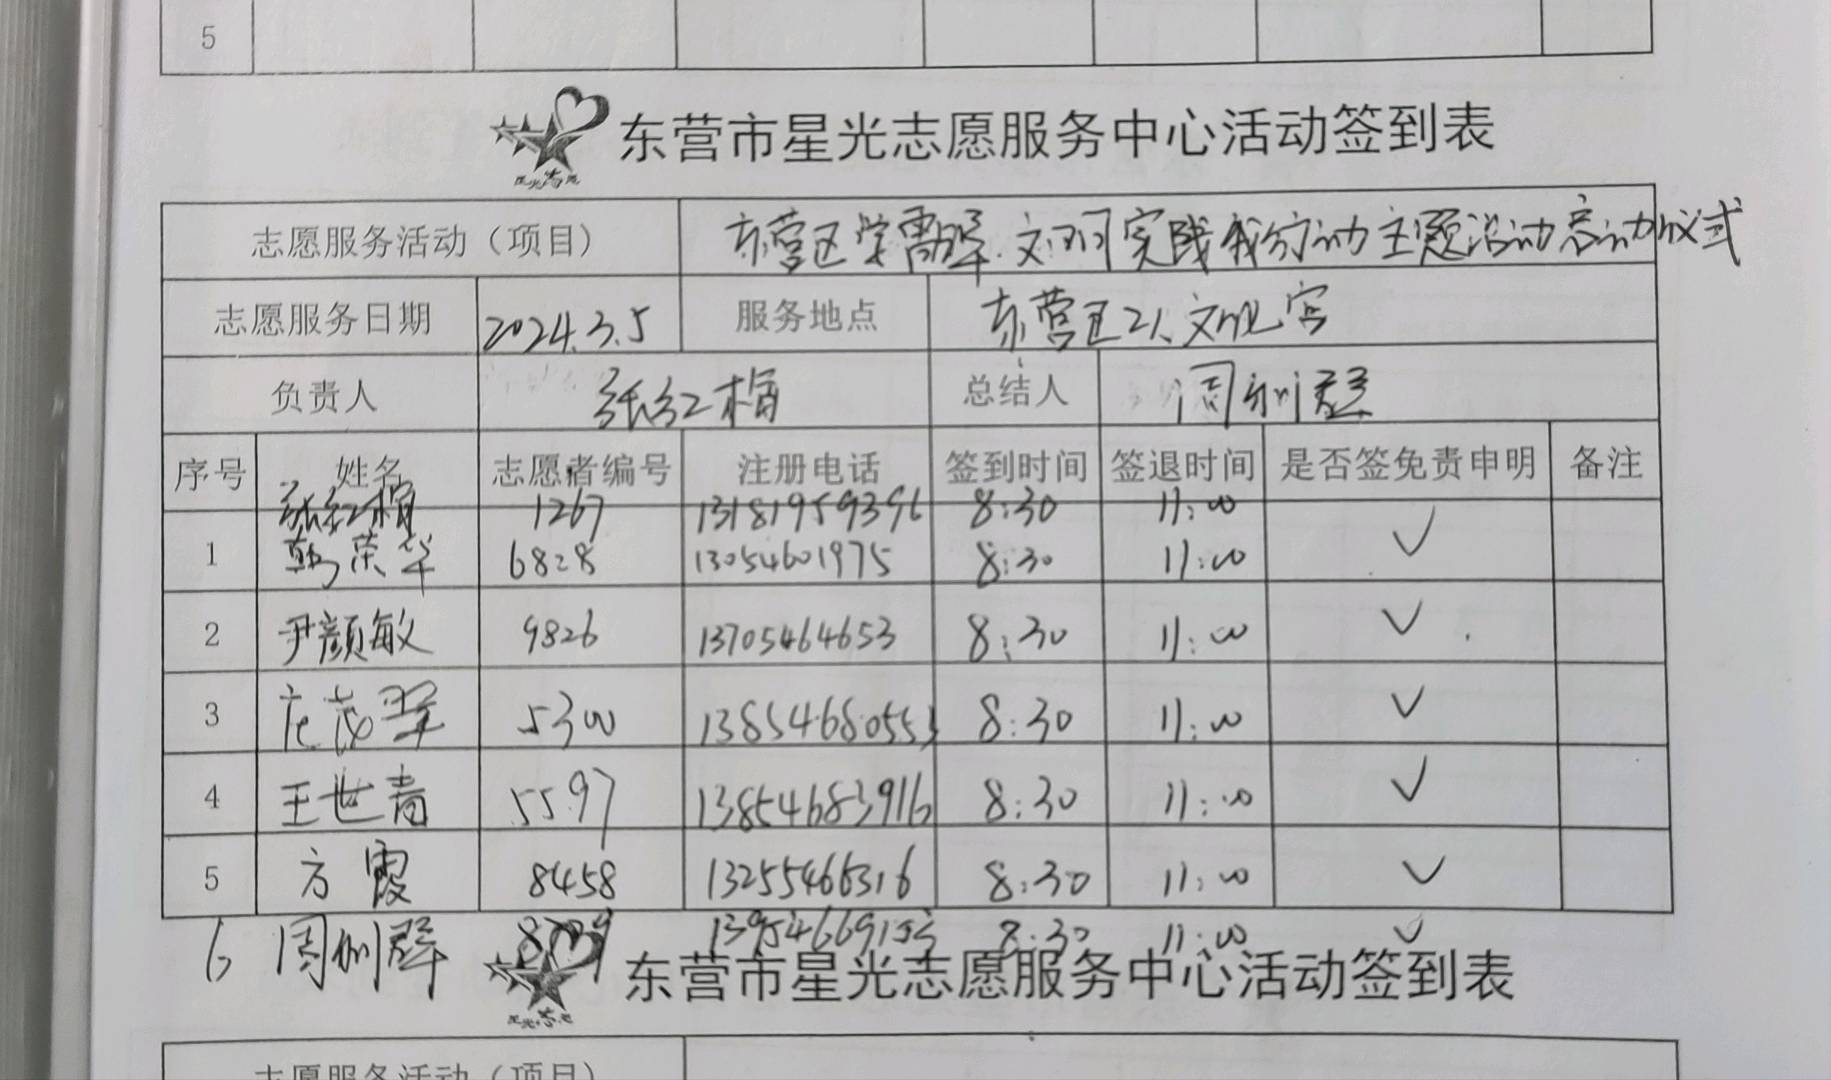 5
东营市星光志愿服务中心活动签到表
星光志愿
志愿服务活动（项目） 东营区学雷锋.文明实践我行动主题活动启动仪式
志愿服务日期 2024.3.5 服务地点 东营区工人文化宫
负责人 张红梅 总结人 周训群
序号 姓名 志愿者编号 注册电话 签到时间 签退时间 是否签免责申明 备注
张红梅 1267 13181959396 8:30 11:00
1 韩荣华 6828 13054601975 8:30 11:00 ✓
2 尹颜敏 9826 13705464653 8:30 11:00 ✓
3 庄茂翠 5300 13854680553 8:30 11:00 ✓
4 王世青 5597 13854683916 8:30 11:00 ✓
5 方霞 8458 13255466316 8:30 11:00 ✓
6 周训群 8:30 11:00 ✓
东营市星光志愿服务中心活动签到表
星光志愿
志愿服务活动（项目）